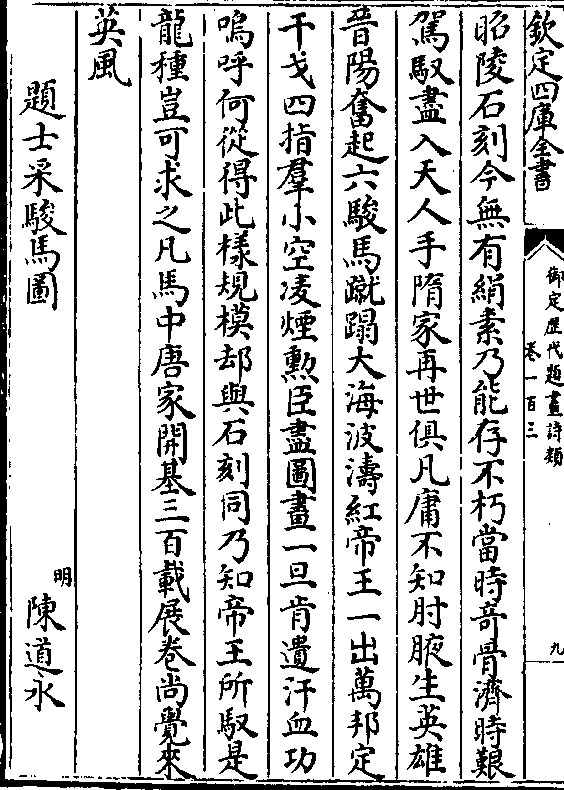 欽定四庫全書
御定歷代題畫詩類
卷一百三
九
昭陵石刻今無有絹素乃能存不朽當時竒骨濟時艱
駕馭盡入天人手隋家再世俱凡庸不知肘腋生英雄
晉陽奮起六駿馬蹴蹋大海波濤紅帝王一出萬邦定
干戈四指羣小空凌煙勲臣盡圖畫一旦肯遺汗血功
嗚呼何從得此樣規模却與石刻同乃知帝王所馭是
龍種豈可求之凡馬中唐家開基三百載展卷尚覺來
英風
題士采駿馬圖
明 陳道永